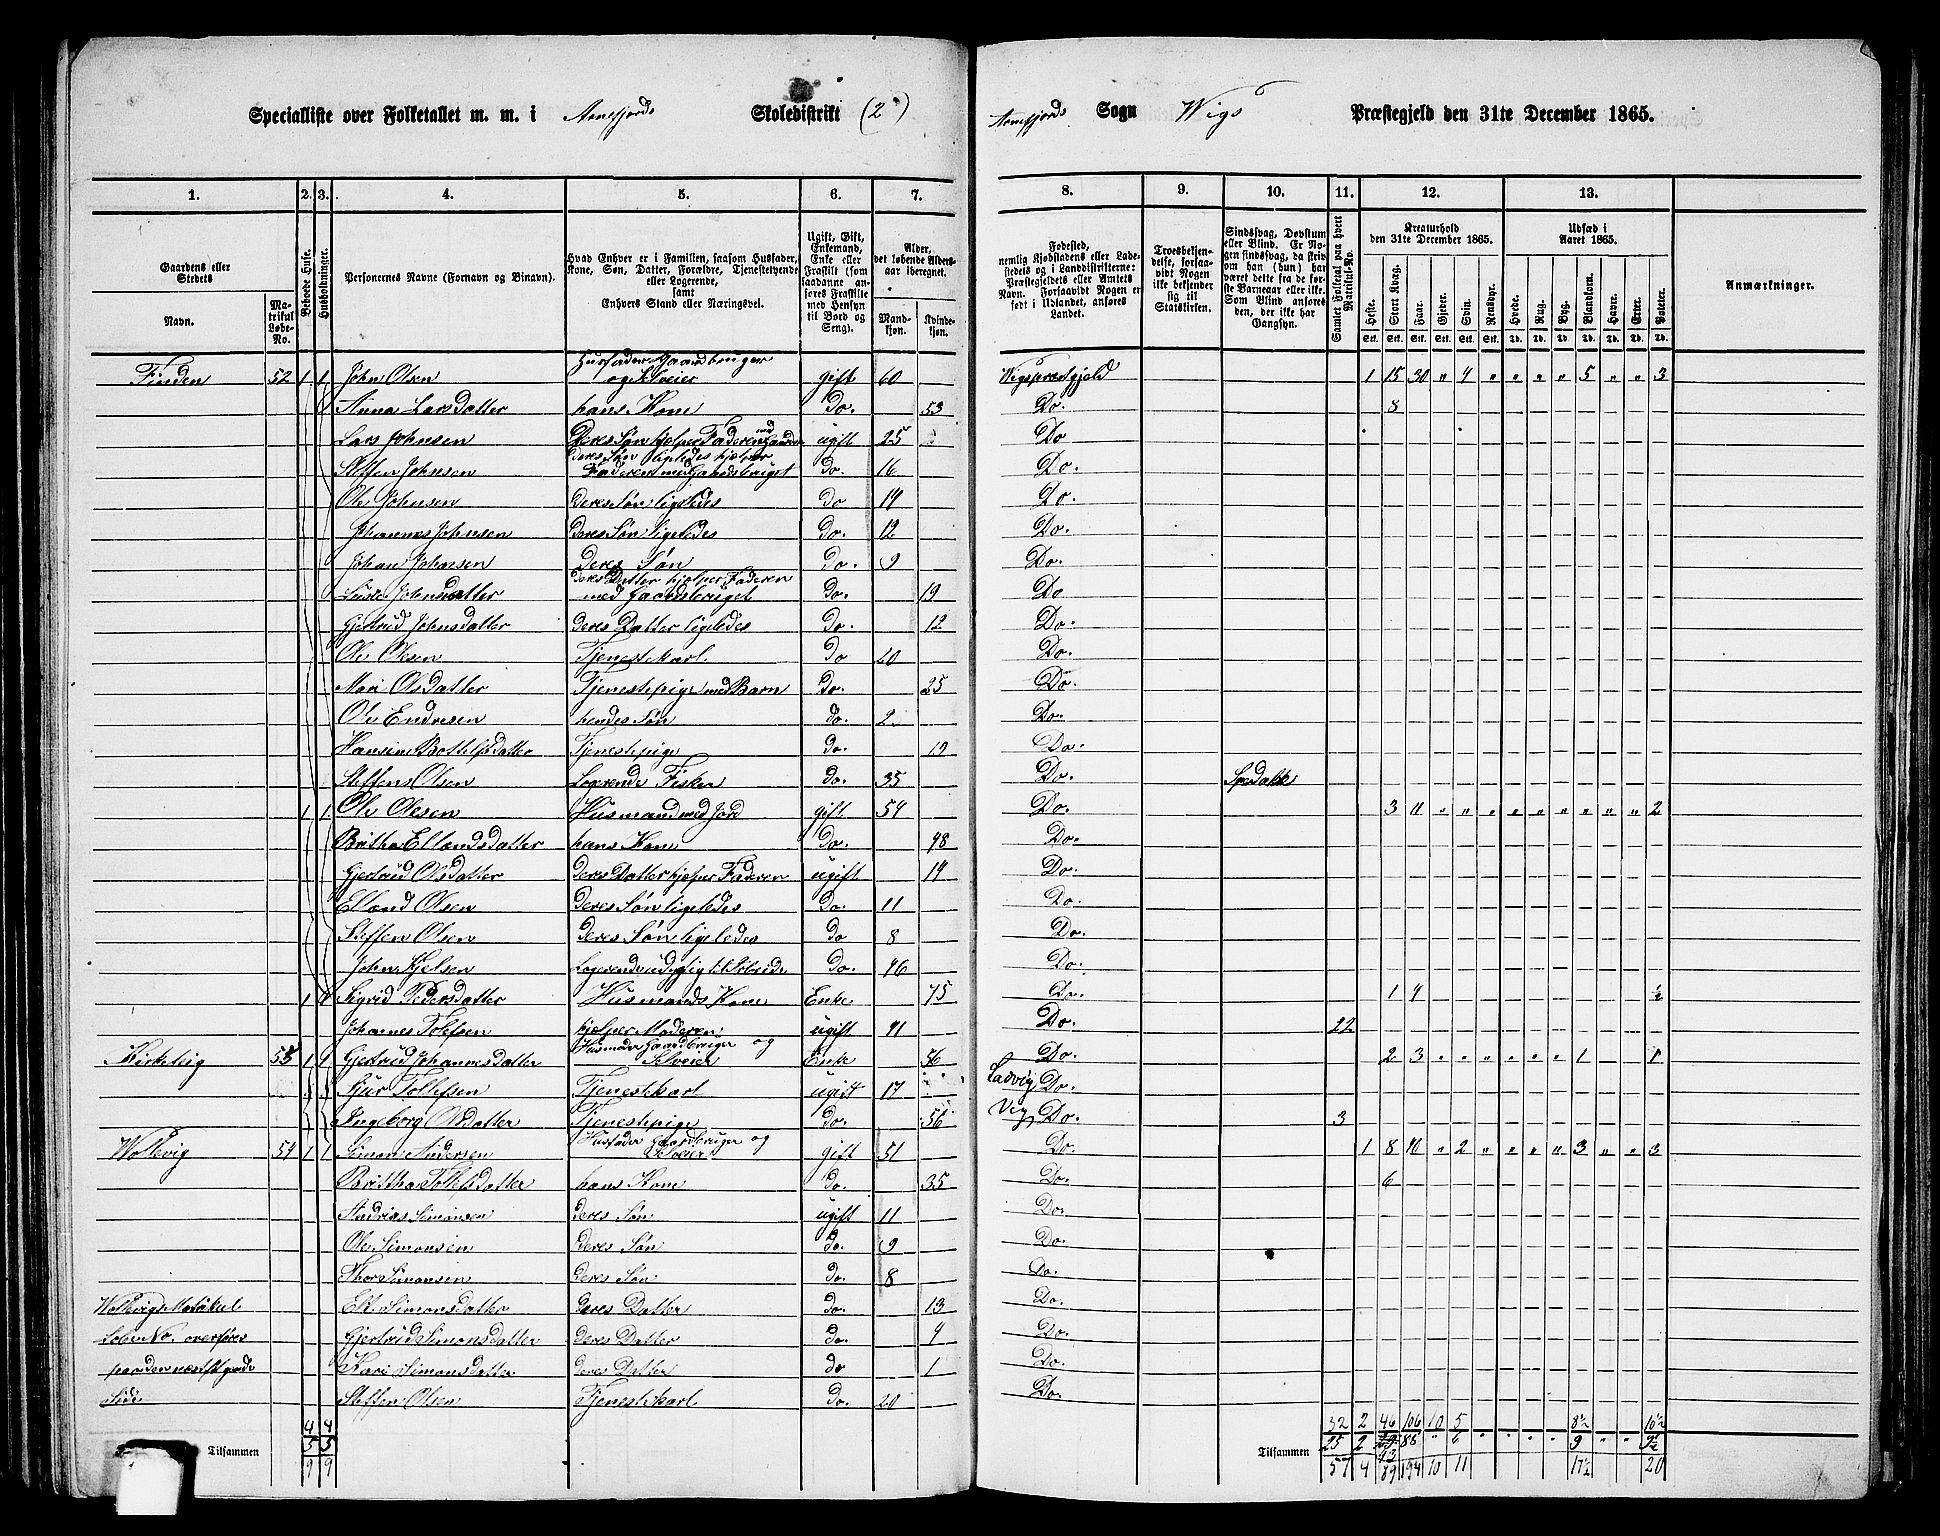 Specialliste over Folketallet m. m. i Arnefjords Skoledistrikt (2) Arnefjords Sogn Wigs Præstegjeld den 31te December 1865.
1. 2. 3. 4. 5. 6. 7. 8. 9. 10. 11. 12. 13.
Gaardens eller Stedets
Navn.
Matrikul Løbe-No.
Beboede Huse.
Husholdninger.
Personernes Navne (Fornavn og Binavn).
Hvad Enhver er i Familien, saasom Husfader, Kone, Søn, Datter, Forældre, Tjenestetyende eller Logerende, samt Enhvers Stand eller Næringsvei.
Ugift, Gift, Enkemand, Enke eller Fraskilt (som saadanne anføres Fraskilte med Hensyn til Bord og Seng).
Alder, det løbende Alders-aar iberegnet.
Mandkjøn. Kvindekjøn.
Fødested, nemlig Kjøbstadens eller Ladestedets og i Landdistrikterne: Præstegjeldets eller Amtets Navn. Forsaavidt Nogen er født i Udlandet, anføres Landet.
Troesbekjendelse, forsaavidt Nogen ikke bekjender sig til Statskirken.
Sindssvag, Døvstum eller Blind. Er Nogen sindssvag, da skriv om han (hun) har været dette fra de første Barneaar eller ikke. Som Blind anføres den, der ikke har Gangsyn.
Samlet Folketal paa hvert Matrikul-No.
Kreaturhold den 31te December 1865.
Heste. Stort Kvæg. Faar. Gjeder. Svin. Rensdyr.
Udsæd i Aaret 1865.
Hvede. Rug. Byg. Blandkorn. Havre. Erter. Poteter.
Anmærkninger.
Finden 52 1 1 John Olsen Husfader Gaardbruger og Selveier gift 60 Wigs præstgjeld 1 15 30 " 4 " " " " 5 " " 3
Anna Larsdatter hans Kone Do. 53 Do. 8
Lars Johnsen Deres Søn hjelper Faderen med Gaarden ugift 25 Do
Steffen Johnsen Deres Søn ligeledes hjelper Faderen med Gaardsbruget Do. 16 Do.
Ole Johnsen Deres Søn ligeledes Do 14 Do.
Johannes Johnsen Deres Søn ligeledes Do. 12 Do.
Johan Johnsen Deres Søn Do. 9 Do.
Johnsdatter Deres Datter hjelper Faderen med Gaardsbruget Do. 19 Do
Gjertrud Johnsdatter Deres Datter ligeledes Do. 12 Do.
Ole Olesen Tjenestekarl Do 20 Do.
Mari Olsdatter Tjenestepige med Barn Do. 25 Do.
Ole Endresen hendes Søn do. 2 Do.
Hansine Bottelfsdatter Tjenestepige Do. 19 Do.
Steffens Olsen Logerende Fisker do. 35 Do. Spedalsk
1 1 Ole Olesen Husmand med Jord gift 54 Do. 3 11 " " " " " " " " " 2
Britha Ellandsdatter hans Kone Do. 48 Do.
Gjertrud Olsdatter Deres Datter hjelper Faderen ugift 14 Do.
Elland Olsen Deres Søn ligeledes Do. 11 Do.
Steffen Olsen Deres Søn ligeledes Do 8 Do.
John Logerende udygtig til Arbeide Do. 46 Do.
1 1 Sigrid Pedersdatter Husmands Kone Enke 75 Do. 1 4 ½
Johannes Tolefsen hjelper Moderen ugift 41 Do. 22
Kirkeleig 53 1 1 Gjertrud Johannesdatter Husmoder Gaardbruger og Selveier Enke 56 Do. 2 3 " " " " " " 1 1
Sjur Tollefsen Tjenestekarl ugift 17 Ladvig Do.
Ingeborg Olsdatter Tjenestepige Do. 56 Vig Do. 3
Wollevig 54 1 1 Simon Andersen Husfader Gaardbruger og Selveier gift 51 Do. 1 8 16 " 2 " " " " 3 " " 3
Brittha Tollefsdatter hans Kone do. 35 Do. 6
Andrias Simonsen Deres Søn ugift 11 Do.
Ole Simonsen Deres Søn Do. 9 Do.
Thor Simonsen Deres Søn Do. 8 Do.
Wollevigs Matrikul Simonsdatter Deres Datter Do. 13 Do.
Løbe No. overføres Gjertrud Simonsdatter Deres Datter Do. 4 Do.
paa den næstfølgende Kari Simonsdatter Deres Datter do 1 Do.
Side Steffen Olsen Tjenestekarl Do. 20 Do.
4 4 32 2 46 106 10 5 8½ 10½
Tilsammen 5 5 Tilsammen 25 2 43 88 " 6 " " " 9 " " 9½
9 9 57 4 89 194 10 11 17½ 20